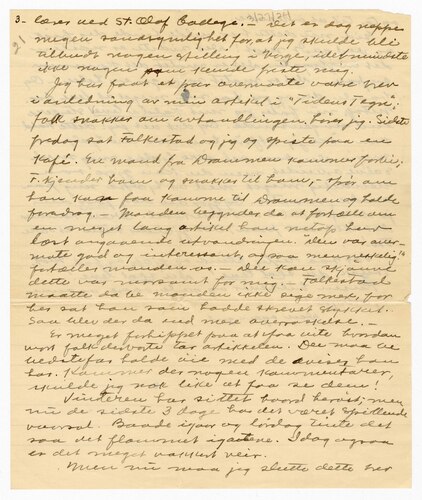 3- lærer ved St. Olaf College. — Det er dog neppe
nogen sandsynlighet for, at jeg skulde bli
tilbudt nogen stilling i Norge, idetmindste
ikke nogen som kunde friste mig.
Jeg har faat et par overmaate vakre brev
i anledning av min artikel i "Tidens Tegn;"
folk snakker om avhandlingen, hører jeg. Sidste
fredag sat Falkestad og jeg og spiste paa en
Kafe. En mand fra Drammen kommer forbi;
F. kjender ham og snakker til ham, — spør om
han kan faa komme til Drammen og holde
foredrag. — Manden begynder da at fortælle om
en meget lang artikel han netop har
læst angaaende utvandringen. Den var over-
maate god og interessant, og saa menneskelig,"
fortæller manden os. — Du kan skjønne
dette var morsomt for mig. — Falkestad
maatte da be manden ikke sige mer, for
her sat han som hadde skrevet stykket.
Saa blev der da med mere overraskelse. —
Er meget forhippet paa at faa vite hvordan
vort folk derborte tar artikkelen. Du maa ve
bedstefar holde øie med de aviser han
har. Kommer der nogen kommentarer,
skulde jeg nok like at faa se dem!
Vinteren har sittet haard hervist, men
nu de sidste 3 dage har det været spillende
vaarsol. Baade igaar og lørdag tinte det
saa det flommet i gatene. Idag ogsaa
er det meget vakkert veir.
Men nu maa jeg slutte dette brev